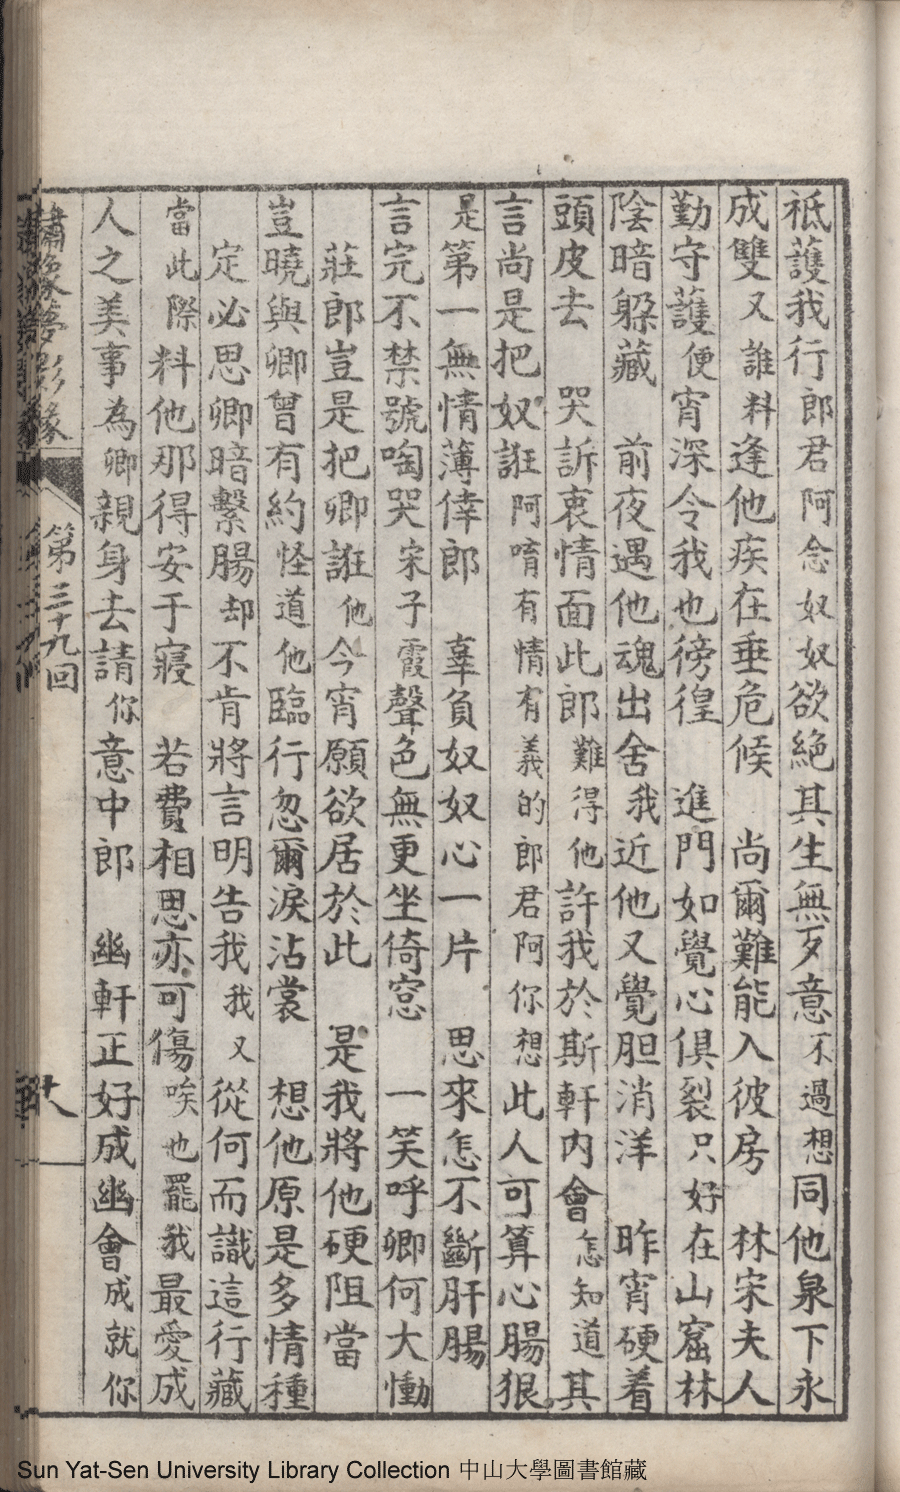 祗護我行郎君阿念奴奴欲絶其生無歹意不過想同他泉下永
成雙又誰料逢他疾在垂危候　尚爾難能入彼房　林宋夫人
勤守護便宵深令我也徬徨　進門如覺心俱裂只好在山窟林
陰暗躱藏　前夜遇他魂出舍我近他又覺胆消洋　昨宵硬着
頭皮去　哭訴衷情面此郎難得他許我於斯軒內會怎知道其
言尚是把奴誑阿唷有情有義的郎君阿你想此人可算心腸狠
是第一無情薄倖郎　辜負奴奴心一片　思來怎不斷肝腸
言完不禁號啕哭宋子霞聲色無更坐倚窓　一笑呼卿何大慟
莊郎豈是把卿誑他今宵願欲居於此　是我將他硬阻當
豈曉與卿曾有約怪道他臨行忽爾淚沾裳　想他原是多情種
定必思卿暗繫腸却不肯將言明告我我又從何而識這行藏
當此際料他那得安于寢　若費相思亦可傷唉也罷我最愛成
人之美事為卿親身去請你意中郎　幽軒正好成幽會成就你
第三十九回